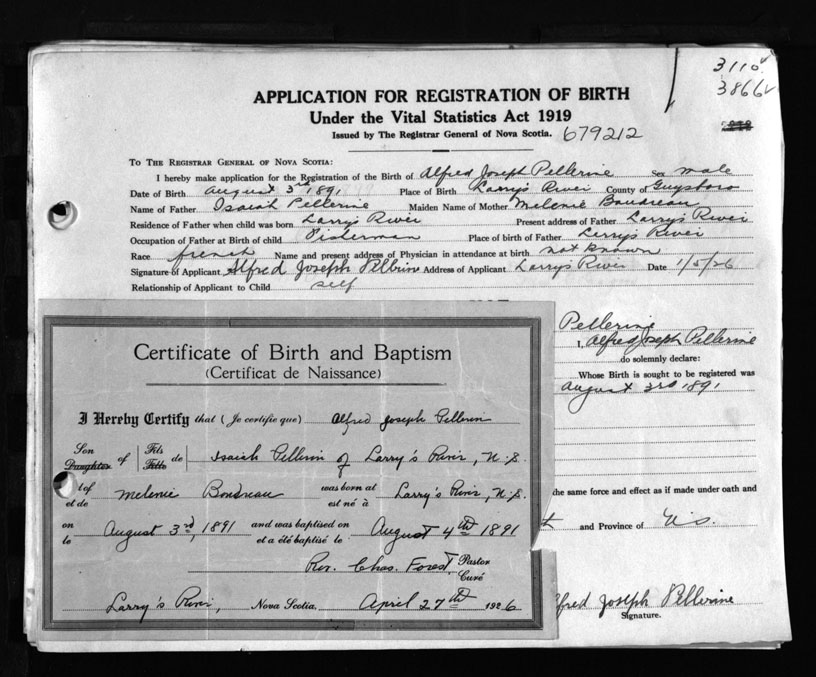 3110
3866
APPLICATION FOR REGISTRATION OF BIRTH
Under the Vital Statistics Act 1919
Issued by The Registrar General of Nova Scotia. 679212
To The Registrar General of Nova Scotia:
I hereby make application for the Registration of the Birth of Alfred Joseph Pellerine Sex male
Date of Birth August 3rd 1891 Place of Birth Larry's River County of Guysboro
Name of Father Isaiah Pellerine Maiden Name of Mother Melenie Boudreau
Residence of Father when child was born Larry's River Present address of Father Larry's River
Occupation of Father at Birth of child Fisherman Place of birth of Father Larry's River
Race french Name and present address of Physician in attendance at birth not known
Signature of Applicant Alfred Joseph Pellerine Address of Applicant Larry's River Date 1/5/26
Relationship of Applicant to Child self
Pellerine
I, Alfred Joseph Pellerine
do solemnly declare:
Whose Birth is sought to be registered was
August 3rd 1891
the same force and effect as if made under oath and
and Province of N.S.
Alfred Joseph Pellerine
Signature.
Certificate of Birth and Baptism
(Certificat de Naissance)
I Hereby Certify that (Je certifie que) Alfred Joseph Pellerin
Son Daughter of Fils Fille de Isaiah Pellerin of Larry's River, N.S.
of et de Melenie Boudreau was born at est né à Larry's River, N.S.
on le August 3rd, 1891 and was baptised on et a été baptisé le August 4th 1891
Rev. Chas. Forest, Pastor Curé
Larry's River, Nova Scotia, April 27th 1926